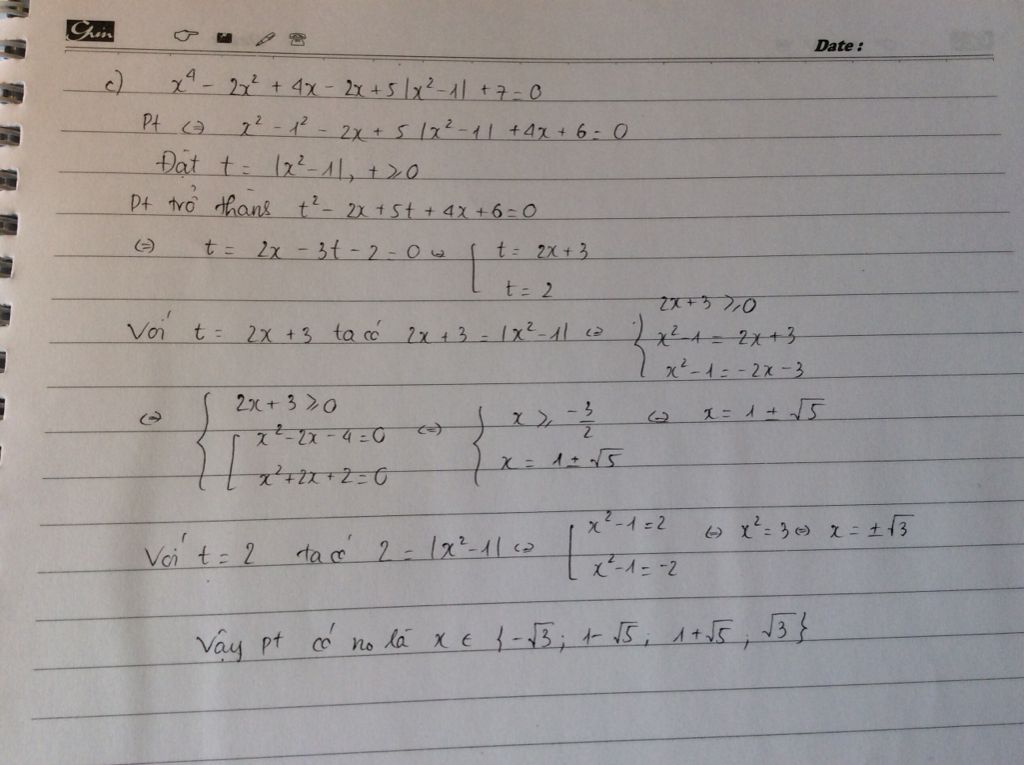 Chin
Date :
c) x⁴ - 2x² + 4x - 2x + 5|x²-1| + 7 = 0
Pt ⇔ x² - 1² - 2x + 5|x²-1| + 4x + 6 = 0
Đặt t = |x²-1|, t ≥ 0
Pt trở thành t² - 2x + 5t + 4x + 6 = 0
⇔ t = 2x - 3t - 2 = 0 ⇔ [ t = 2x + 3
t = 2
Với t = 2x + 3 ta có 2x + 3 = |x²-1| ⇔ { 2x + 3 ≥ 0
x²-1 = 2x + 3
x²-1 = -2x - 3
⇔ { 2x + 3 ≥ 0
[ x² - 2x - 4 = 0
x² + 2x + 2 = 0
⇔ { x ≥ -3/2
x = 1 ± √5
⇔ x = 1 ± √5
Với t = 2 ta có 2 = |x²-1| ⇔ [ x²-1 = 2
x²-1 = -2
⇔ x² = 3 ⇔ x = ±√3
Vậy pt có no là x ∈ {-√3; 1-√5; 1+√5, √3}